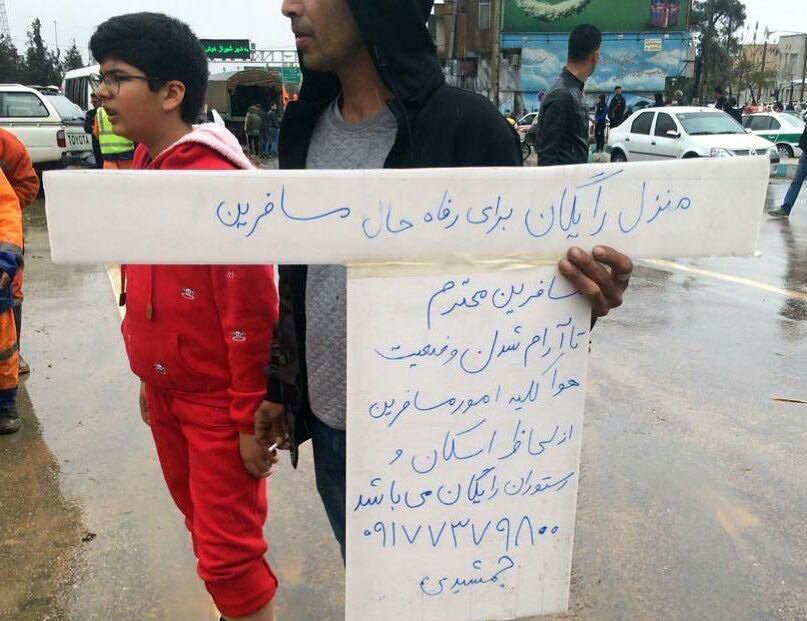 به شهر شیراز خوش
TOYOTA
منزل رایگان برای رفاه حال مسافرین
مسافرین محترم
تا آرام شدن وضعیت
هوا کلیه امور مسافرین
از لحاظ اسکان و
رستوران رایگان می باشد
۰۹۱۷۷۳۷۹۸۰۰
جمشیدی